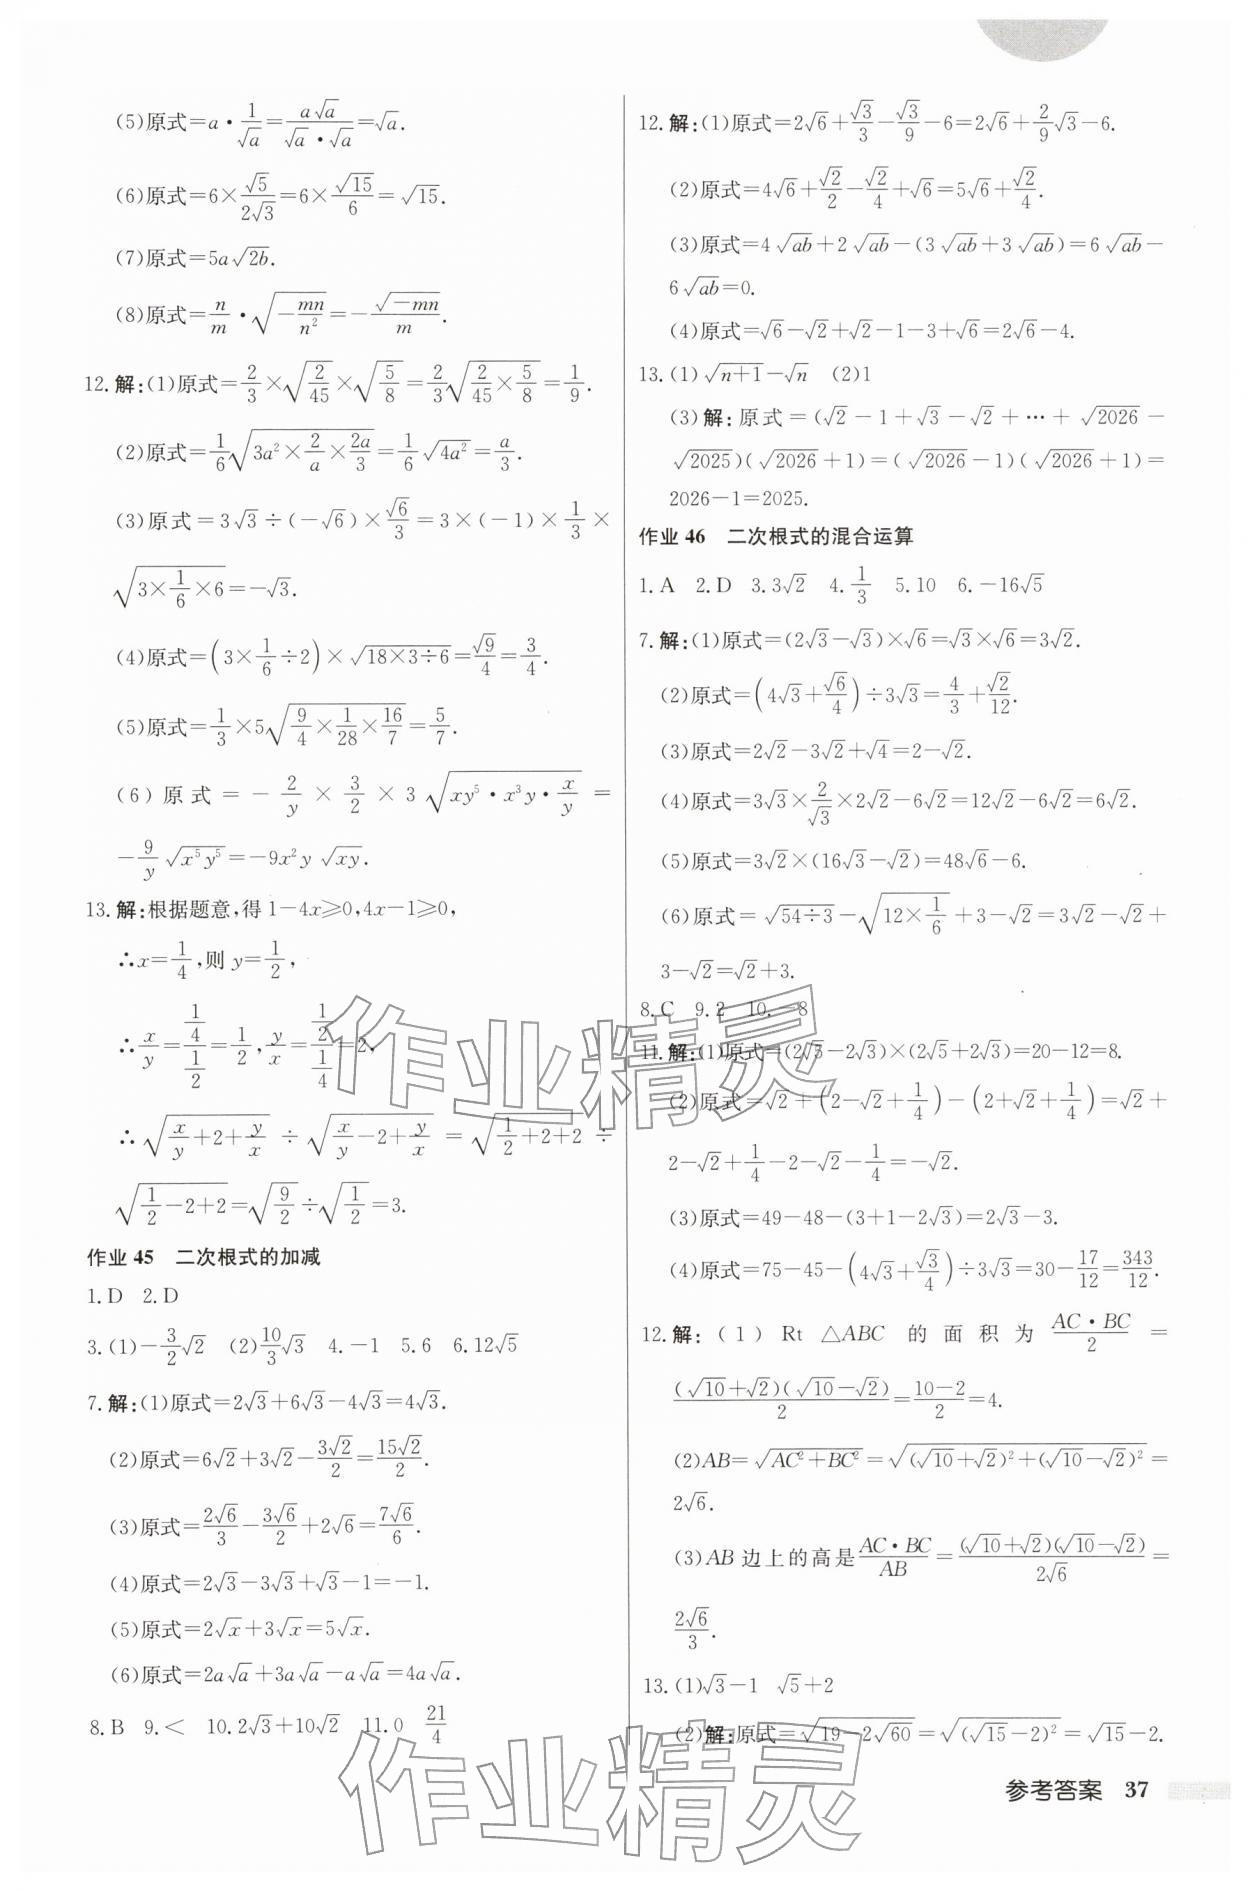 (5)原式=a·\frac{1}{\sqrt{a}}=\frac{a\sqrt{a}}{\sqrt{a}·\sqrt{a}}=\sqrt{a}.
(6)原式=6×\frac{\sqrt{5}}{2\sqrt{3}}=6×\frac{\sqrt{15}}{6}=\sqrt{15}.
(7)原式=5a\sqrt{2b}.
(8)原式=\frac{n}{m}·\sqrt{-\frac{mn}{n^2}}=-\frac{\sqrt{-mn}}{m}.
12.解:(1)原式=\frac{2}{3}×\sqrt{\frac{2}{45}}×\sqrt{\frac{5}{8}}=\frac{2}{3}\sqrt{\frac{2}{45}×\frac{5}{8}}=\frac{1}{9}.
(2)原式=\frac{1}{6}\sqrt{3a^2×\frac{2}{a}×\frac{2a}{3}}=\frac{1}{6}\sqrt{4a^2}=\frac{a}{3}.
(3)原式=3\sqrt{3}÷(-\sqrt{6})×\frac{\sqrt{6}}{3}=3×(-1)×\frac{1}{3}×
\sqrt{3×\frac{1}{6}×6}=-\sqrt{3}.
(4)原式=(3×\frac{1}{6}÷2)×\sqrt{18×3÷6}=\frac{\sqrt{9}}{4}=\frac{3}{4}.
(5)原式=\frac{1}{3}×5\sqrt{\frac{9}{4}×\frac{1}{28}×\frac{16}{7}}=\frac{5}{7}.
(6)原式=-\frac{2}{y}×\frac{3}{2}×3\sqrt{xy^5·x^3y·\frac{x}{y}}=
-\frac{9}{y}\sqrt{x^5y^5}=-9x^2y\sqrt{xy}.
13.解:根据题意,得1-4x≥0,4x-1≥0,
∴x=\frac{1}{4},则y=\frac{1}{2},
∴\frac{x}{y}=\frac{\frac{1}{4}}{\frac{1}{2}}=\frac{1}{2},\frac{y}{x}=\frac{\frac{1}{2}}{\frac{1}{4}}=2,
∴\sqrt{\frac{x}{y}+2+\frac{y}{x}}÷\sqrt{\frac{x}{y}-2+\frac{y}{x}}=\sqrt{\frac{1}{2}+2+2}÷
\sqrt{\frac{1}{2}-2+2}=\sqrt{\frac{9}{2}}÷\sqrt{\frac{1}{2}}=3.
作业45 二次根式的加减
1.D 2.D
3.(1)-\frac{3}{2}\sqrt{2} (2)\frac{10}{3}\sqrt{3} 4.-1 5.6 6.12\sqrt{5}
7.解:(1)原式=2\sqrt{3}+6\sqrt{3}-4\sqrt{3}=4\sqrt{3}.
(2)原式=6\sqrt{2}+3\sqrt{2}-\frac{3\sqrt{2}}{2}=\frac{15\sqrt{2}}{2}.
(3)原式=\frac{2\sqrt{6}}{3}-\frac{3\sqrt{6}}{2}+2\sqrt{6}=\frac{7\sqrt{6}}{6}.
(4)原式=2\sqrt{3}-3\sqrt{3}+\sqrt{3}-1=-1.
(5)原式=2\sqrt{x}+3\sqrt{x}=5\sqrt{x}.
(6)原式=2a\sqrt{a}+3a\sqrt{a}-a\sqrt{a}=4a\sqrt{a}.
8.B 9.< 10.2\sqrt{3}+10\sqrt{2} 11.0 \frac{21}{4}
12.解:(1)原式=2\sqrt{6}+\frac{\sqrt{3}}{3}-\frac{\sqrt{3}}{9}-6=2\sqrt{6}+\frac{2}{9}\sqrt{3}-6.
(2)原式=4\sqrt{6}+\frac{\sqrt{2}}{2}-\frac{\sqrt{2}}{4}+\sqrt{6}=5\sqrt{6}+\frac{\sqrt{2}}{4}.
(3)原式=4\sqrt{ab}+2\sqrt{ab}-(3\sqrt{ab}+3\sqrt{ab})=6\sqrt{ab}-
6\sqrt{ab}=0.
(4)原式=\sqrt{6}-\sqrt{2}+\sqrt{2}-1-3+\sqrt{6}=2\sqrt{6}-4.
13.(1)\sqrt{n+1}-\sqrt{n} (2)1
(3)解:原式=(\sqrt{2}-1+\sqrt{3}-\sqrt{2}+…+\sqrt{2026}-
\sqrt{2025})(\sqrt{2026}+1)=(\sqrt{2026}-1)(\sqrt{2026}+1)=
2026-1=2025.
作业46 二次根式的混合运算
1.A 2.D 3.3\sqrt{2} 4.\frac{1}{3} 5.10 6.-16\sqrt{5}
7.解:(1)原式=(2\sqrt{3}-\sqrt{3})×\sqrt{6}=\sqrt{3}×\sqrt{6}=3\sqrt{2}.
(2)原式=(4\sqrt{3}+\frac{\sqrt{6}}{4})÷3\sqrt{3}=\frac{4}{3}+\frac{\sqrt{2}}{12}.
(3)原式=2\sqrt{2}-3\sqrt{2}+\sqrt{4}=2-\sqrt{2}.
(4)原式=3\sqrt{3}×\frac{2}{\sqrt{3}}×2\sqrt{2}-6\sqrt{2}=12\sqrt{2}-6\sqrt{2}=6\sqrt{2}.
(5)原式=3\sqrt{2}×(16\sqrt{3}-\sqrt{2})=48\sqrt{6}-6.
(6)原式=\sqrt{54÷3}-\sqrt{12×\frac{1}{6}}+3-\sqrt{2}=3\sqrt{2}-\sqrt{2}+
3-\sqrt{2}=\sqrt{2}+3.
8.C 9.2 10.-8
11.解:(1)原式=(2\sqrt{5}-2\sqrt{3})×(2\sqrt{5}+2\sqrt{3})=20-12=8.
(2)原式=\sqrt{2}+(2-\sqrt{2}+\frac{1}{4})-(2+\sqrt{2}+\frac{1}{4})=\sqrt{2}+
2-\sqrt{2}+\frac{1}{4}-2-\sqrt{2}-\frac{1}{4}=-\sqrt{2}.
(3)原式=49-48-(3+1-2\sqrt{3})=2\sqrt{3}-3.
(4)原式=75-45-(4\sqrt{3}+\frac{\sqrt{3}}{4})÷3\sqrt{3}=30-\frac{17}{12}=\frac{343}{12}.
12.解:(1)Rt△ABC的面积为\frac{AC·BC}{2}=
\frac{(\sqrt{10}+\sqrt{2})(\sqrt{10}-\sqrt{2})}{2}=\frac{10-2}{2}=4.
(2)AB=\sqrt{AC^2+BC^2}=\sqrt{(\sqrt{10}+\sqrt{2})^2+(\sqrt{10}-\sqrt{2})^2}=
2\sqrt{6}.
(3)AB边上的高是\frac{AC·BC}{AB}=\frac{(\sqrt{10}+\sqrt{2})(\sqrt{10}-\sqrt{2})}{2\sqrt{6}}=
\frac{2\sqrt{6}}{3}.
13.(1)\sqrt{3}-1 \sqrt{5}+2
(2)解:原式=\sqrt{19-2\sqrt{60}}=\sqrt{(\sqrt{15}-2)^2}=\sqrt{15}-2.
参考答案 37
作业精灵
作业精灵